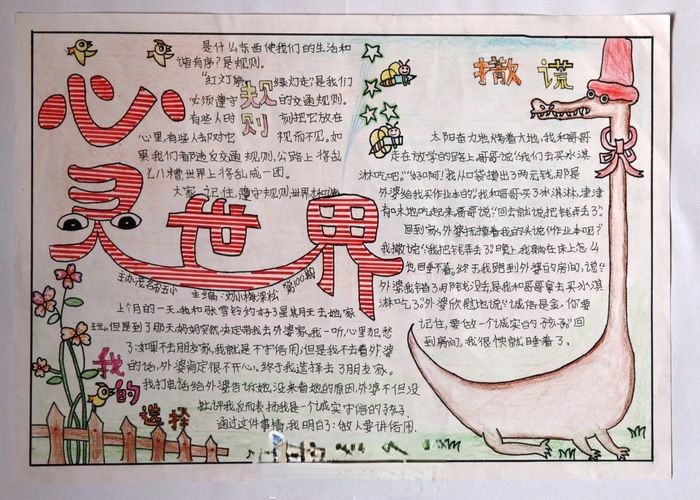 心灵世界
规则
是什么东西使我们的生活和
谐有序?是规则。
"红灯停 绿灯走"是我们
必须遵守 的交通规则。
有些人时 刻把它放在
心里,有些人却对它 视而不见。如
果我们都违反交通规则,公路上将乱
七八糟世界上将乱成一团。
大家 记住,遵守规则,世界
主办:茂名市五小 主编:刘小梅 梁松 第100期
我的选择
上个月的一天,我和张雪铃约好了星期天去她家
玩。但是到了那天,妈妈突然决定带我去外婆家。我一听,心里犯愁
了:如果不去朋友家,我就是不守信用,但是我不去看外婆
的话,外婆肯定很不开心。终于我选择去了朋友家。
我打电话给外婆告诉她,没来看她的原因,外婆不但没
批评我,反而表扬我是一个诚实守信的孩子。
通过这件事情,我明白了:做人要讲信用
撒谎
太阳奋力地烤着大地,我和哥哥
走在放学的路上,哥哥说:"我们去买冰淇
淋吃吧。""好啊!我从口袋撑出了两元钱,那是
外婆给我买作业本的。"我和哥哥买了冰淇淋,津津
有味地吃起来。哥哥说:"回去就说把钱弄丢了。"
回到家,外婆抚摸着我的头说:"作业本呢?"
我撒说:"我把钱弄丢了。"晚上,我躺在床上怎么
也睡不着。终于我跑到外婆的房间,说:"
外婆我错了,那钱没丢,是我和哥哥拿去买冰淇
淋吃了。"外婆欣慰地说:"诚信是金,你要
记住,要做一个诚实的孩子。"回
到房间,我很快就睡着了。